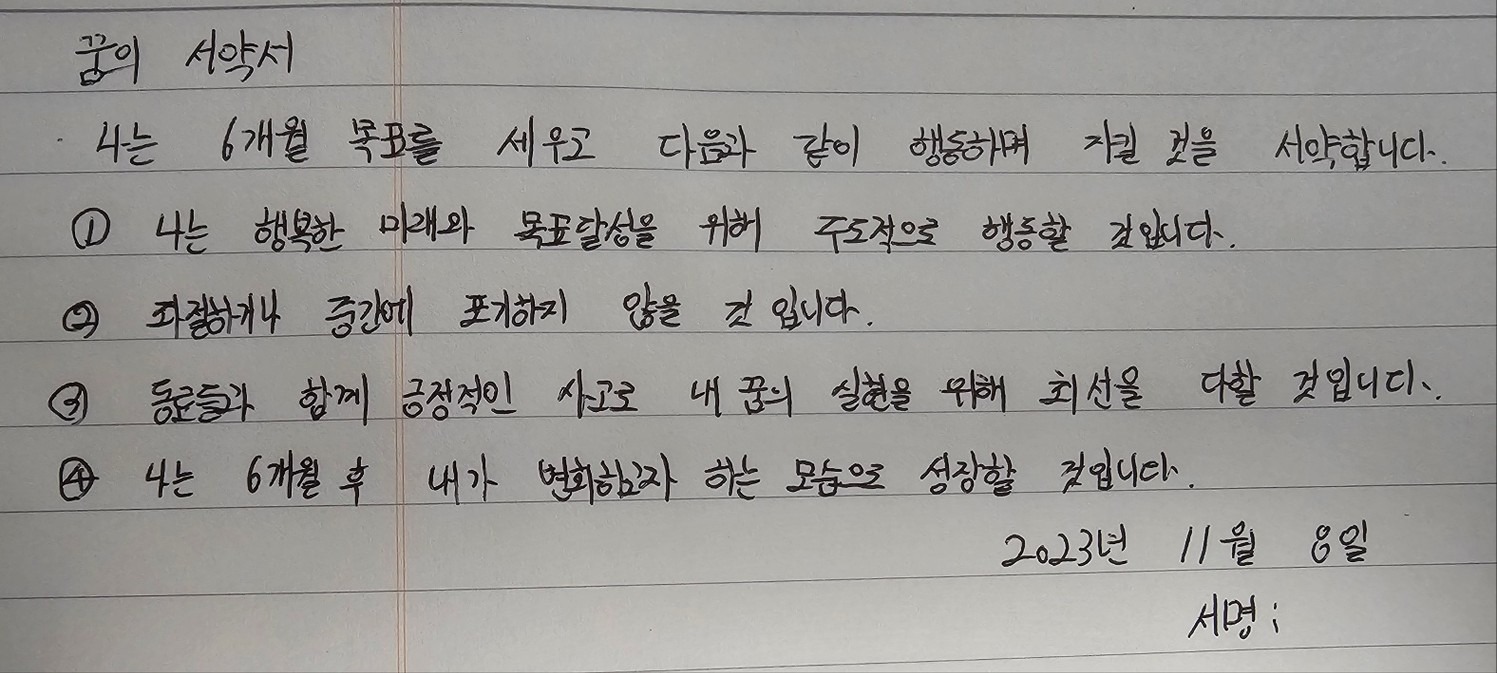 꿈의 서약서
나는 6개월 목표를 세우고 다음과 같이 행동하며 지킬 것을 서약합니다.
① 나는 행복한 미래와 목표달성을 위해 주도적으로 행동할 것입니다.
② 좌절하거나 중간에 포기하지 않을 것 입니다.
③ 동료들과 함께 긍정적인 사고로 내 꿈의 실현을 위해 최선을 다할 것입니다.
④ 나는 6개월 후 내가 변화하고자 하는 모습으로 성장할 것입니다.
2023년 11월 8일
서명: